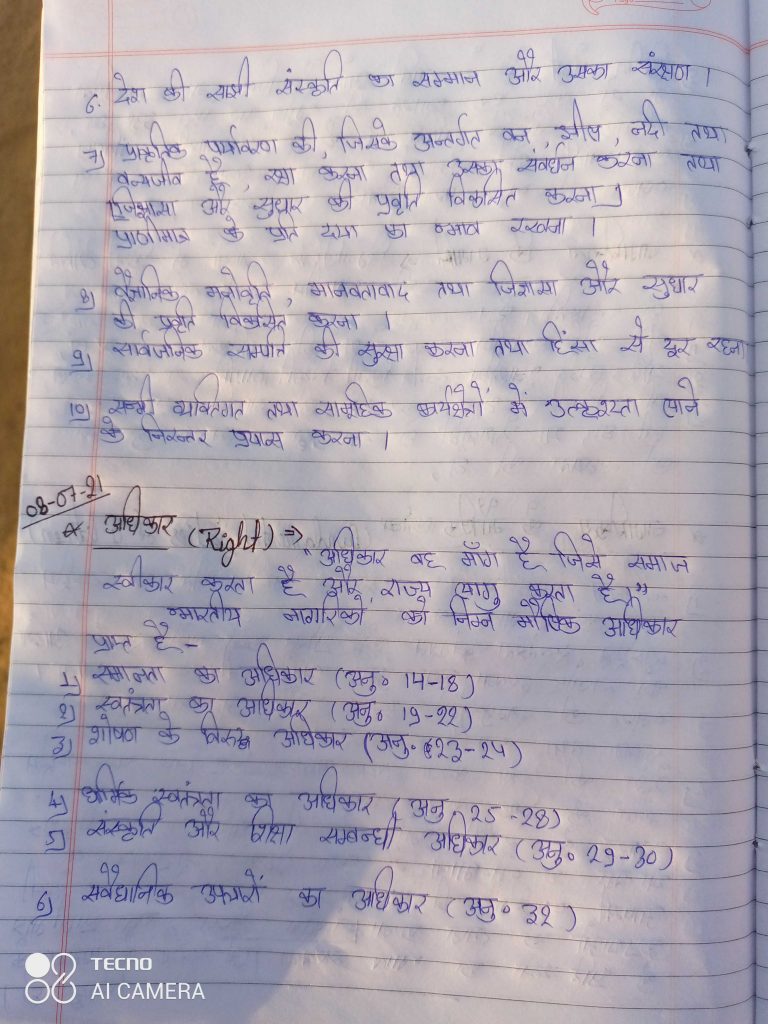 6. देश की साझी संस्कृति का सम्मान और उसका संरक्षण ।
7) प्राकृतिक पर्यावरण की, जिसके अन्तर्गत वन, झील, नदी तथा
वन्यजीव हैं, रक्षा करना तथा उसका संवर्धन करना तथा
[जिज्ञासा और सुधार की प्रवृति विकसित करना]
प्राणीमात्र के प्रति दया का भाव रखना ।
8) वैज्ञानिक मनोवृति, मानवतावाद तथा जिज्ञासा और सुधार
की प्रवृति विकसित करना ।
9) सार्वजनिक सम्पति की सुरक्षा करना तथा हिंसा से दूर रहना
10) सभी व्यक्तिगत तथा सामूहिक कार्यक्षेत्रों में उत्कृष्टता लाने
के निरन्तर प्रयास करना ।
08-07-21
* अधिकार (Right) ⇒
"अधिकार वह माँग है जिसे समाज
स्वीकार करता है और राज्य लागु करता है।"
भारतीय नागरिकों को निम्न मौलिक अधिकार
प्राप्त है -
1) समानता का अधिकार (अनु० 14-18)
2) स्वतंत्रता का अधिकार (अनु० 19-22)
3) शोषण के विरुद्ध अधिकार (अनु० 23-24)
4) धार्मिक स्वतंत्रता का अधिकार (अनु 25-28)
5) संस्कृति और शिक्षा सम्बन्धी अधिकार (अनु० 29-30)
6) संवैधानिक उपचारों का अधिकार (अनु० 32)
TECNO
AI CAMERA